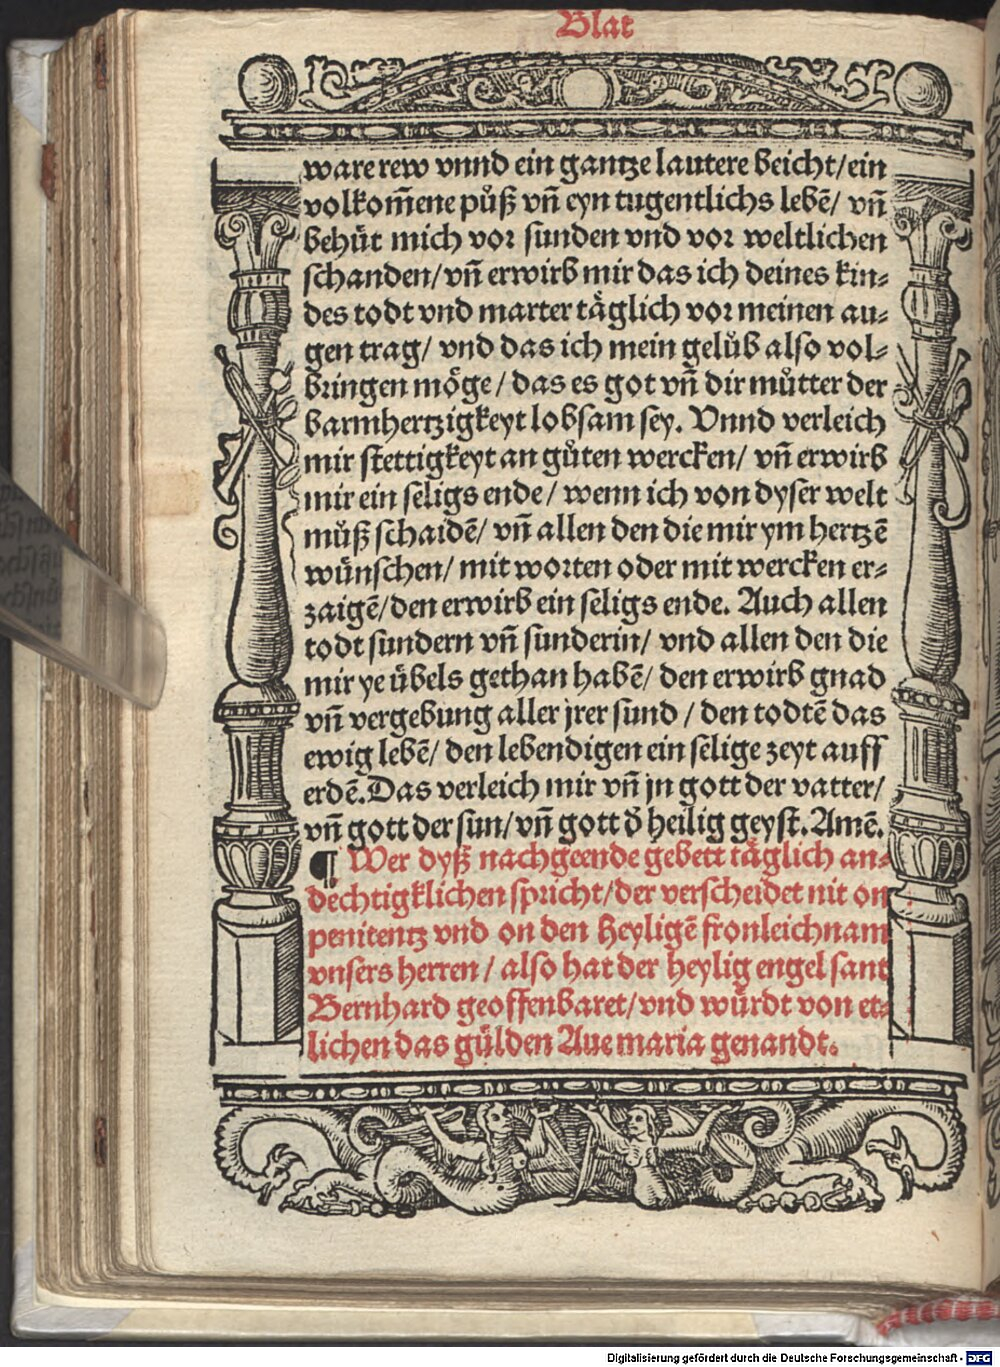 Blat
ware rew vnnd ein gantze lautere beicht/ein
volkom̄ene půß vn̄ eyn tugentlichs lebē/ vn̄
behüt mich vor sunden vnd vor weltlichen
schanden/vn̄ erwirb mir das ich deines kin⸗
des todt vnd marter täglich vor meinen au⸗
gen trag/ vnd das ich mein gelůb also vol⸗
bringen möge/das es got vn̄ dir můtter der
barmhertzigkeyt lobsam sey. Vnnd verleich
mir stettigkeyt an gůten wercken/ vn̄ erwirb
mir ein seligs ende/ wenn ich von dyser welt
můß schaidē/ vn̄ allen den die mir ym hertzē
wünschen/ mit worten oder mit wercken er⸗
zaigē/den erwirb ein seligs ende. Auch allen
todt sundern vn̄ sunderin/ vnd allen den die
mir ye übels gethan habē/ den erwirb gnad
vn̄ vergebung aller jrer sund/ den todtē das
ewig lebē/ den lebendigen ein selige zeyt auff
erdē. Das verleich mir vn̄ jn gott der vatter/
vn̄ gott der sun/vn̄ gott d̕ heilig geyst. Amē.
¶ Wer dyß nachgeende gebett täglich an⸗
dechtigklichen spricht/der verscheidet nit on
penitentz vnd on den heyligē fronleichnam
vnsers herren/ also hat der heylig engel sant
Bernhard geoffenbaret/vnd würdt von et⸗
lichen das gülden Aue maria genandt.
Digitalisierung gefördert durch die Deutsche Forschungsgemeinschaft - DFG